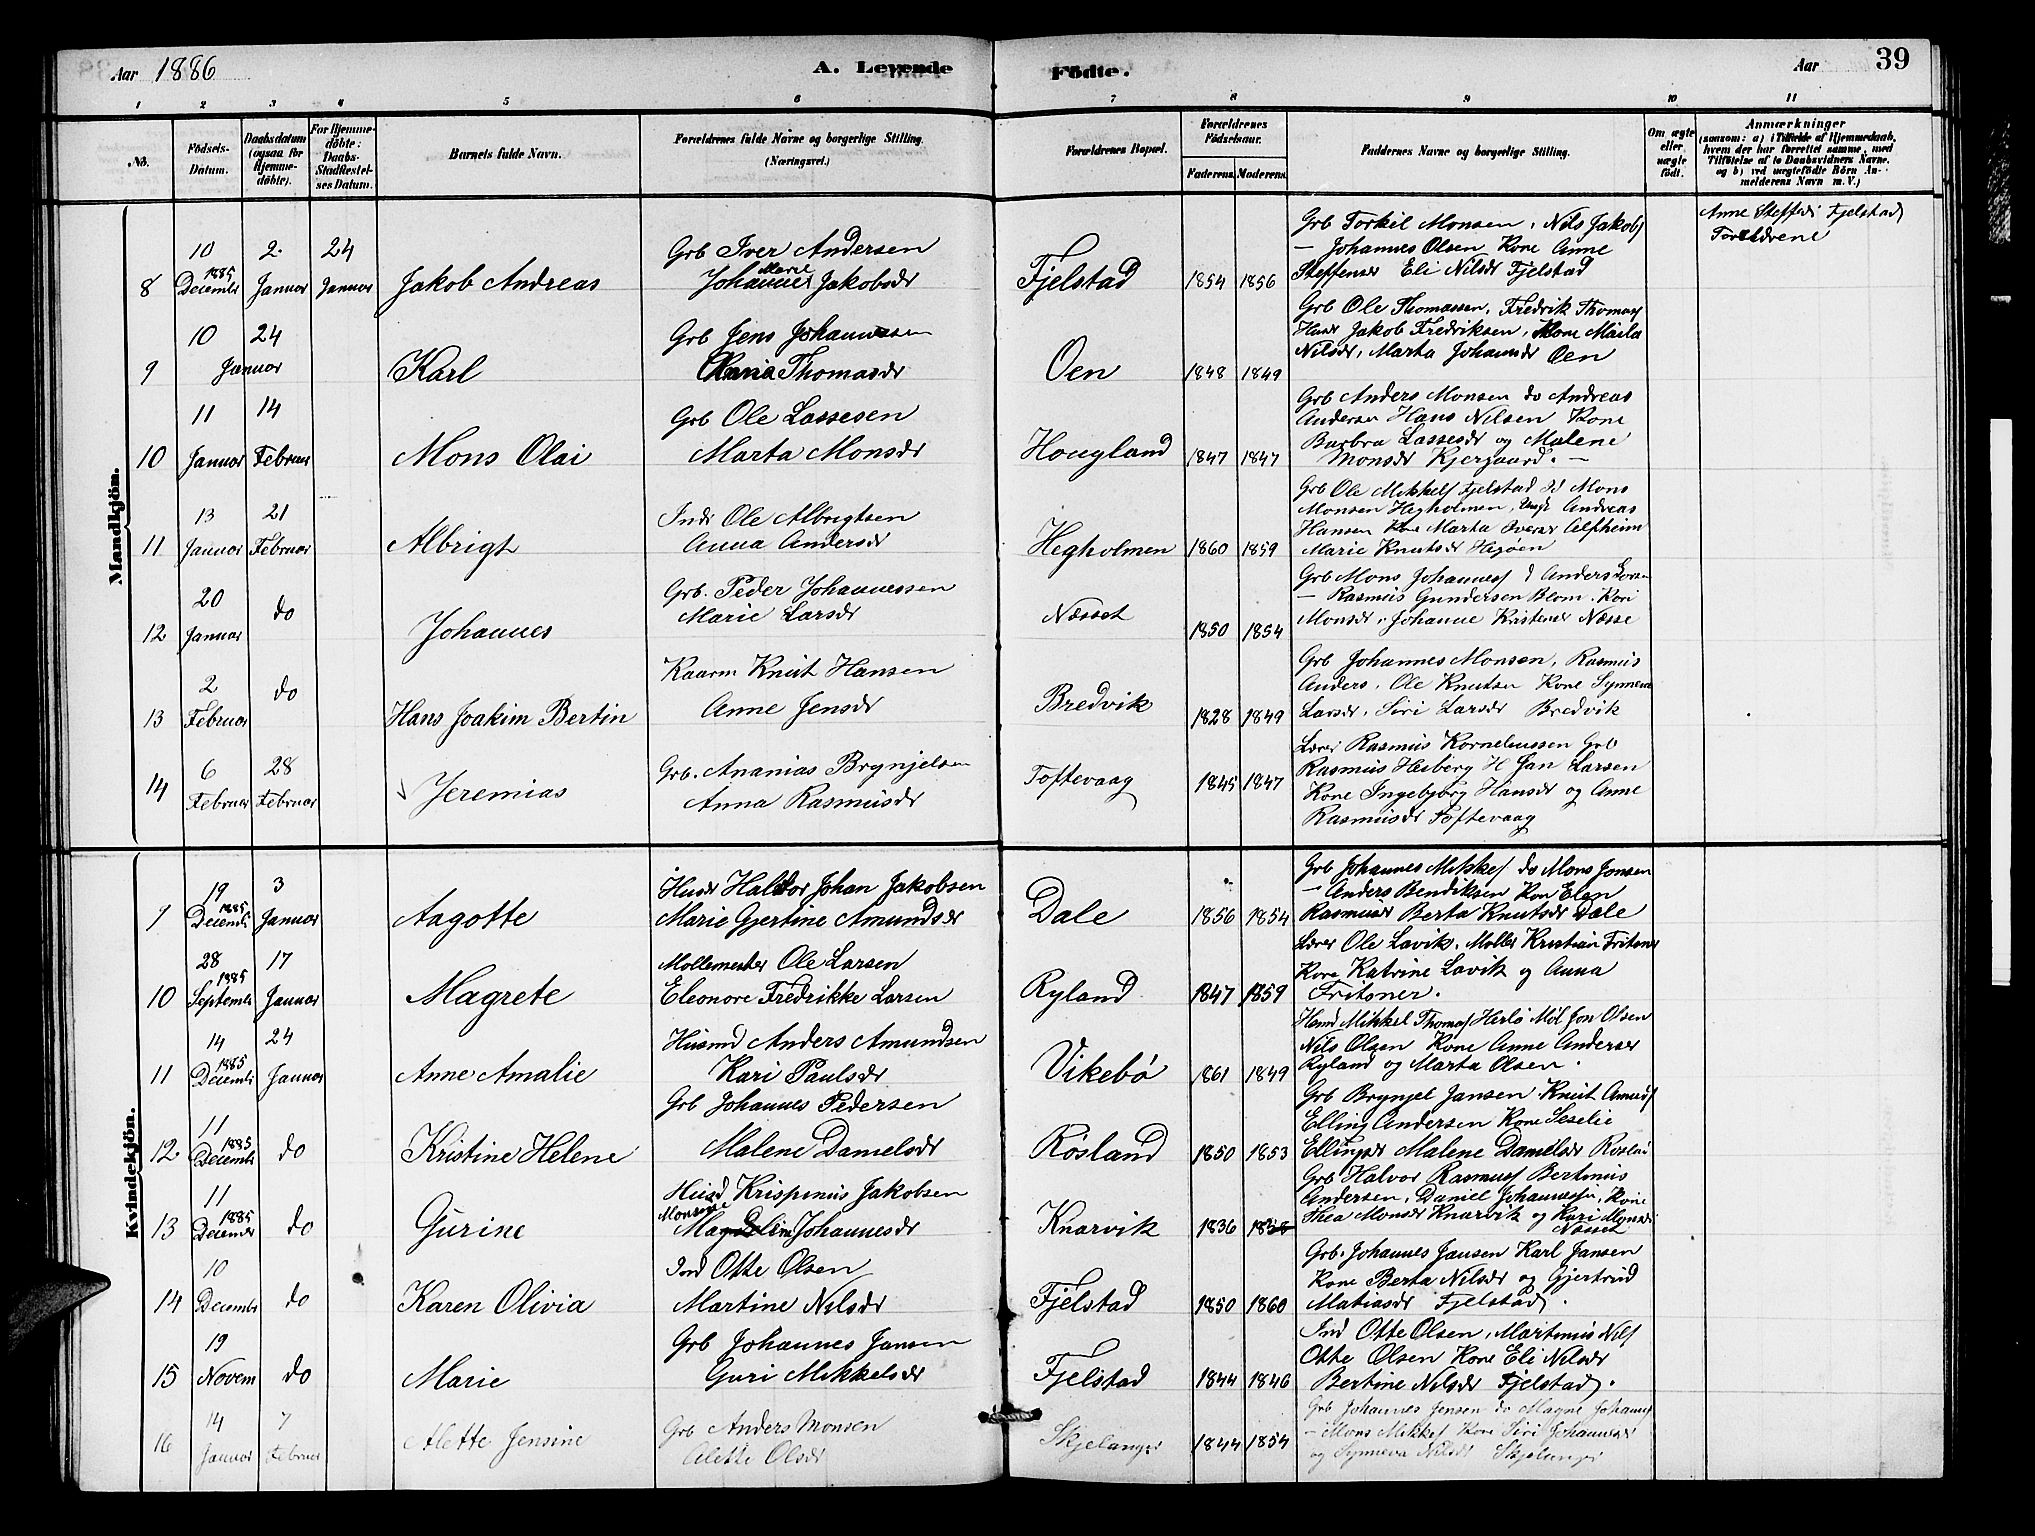 Aar 1886
A. Levende
Födte.
Aar
39
1 2 3 4 5 6 7 8 9 10 11
No.
Födsels-Datum.
Daabsdatum (ogsaa for Hjemme-döbte).
For Hjemme-döbte: Daabs-Stadfæstel-ses Datum.
Barnets fulde Navn.
Forældrenes fulde Navne og borgerlige Stilling. (Næringsvei.)
Forældrenes Bopæl.
Forældrenes Födselsaar.
Faderens. Moderens.
Faddernes Navne og borgerlige Stilling.
Om ægte eller uægte födt.
Anmærkninger
(saasom: a) i Tilfælde af Hjemmedaab, hvem der har forrettet samme, med Tilföielse af to Daabsvidners Navne. og b) ved uægtefödte Börn An-melderens Navn m. V.)
Mandkjön.
10 2. 24 Grb Iver Andersen Grb Torkil Monsen, Nils Jakobs
1885 Marie — Johannes Olsen Kone Anne
8 December Januar Januar Jakob Andreas Johanne Jakobsdr Fjelstad 1854 1856 Steffensdr Eli Nilsdr Fjelstad
Anne Steffesd Fjelstad
Forældrene
10 24 Grb Jens Johannessen Grb Ole Thomassen, Fredrik Thomas
Husm Jakob Fredriksen, Kone Maila
9 Januar Karl Thomasdr Oen 1848 1849 Nilsdr, Marta Johansdr Oen
11 14 Grb Ole Lassesen Grb Anders Monsen do Andreas
Andersen Hans Nilsen Kone
10 Januar Februar Mons Olai Marta Monsdr Hougland 1847 1847 Barbra Lassesdr og Malene
Monsdr Kjergaard. —
13 21 Inds Ole Albrigtsen Grb Ole Mikkels Fjelstad Id Mons
Monsen Hegholmen, Ungk Andreas
11 Januar Februar Albrigt Anna Andersdr Hegholmen 1860 1859 Hansen Kone Marta Iversdr Alfheim
Marie Knutsdr Hegøen
20 do Grb. Peder Johannessen Grb Mons Johannes d Anders Larsen
Marie Larsdr Næsset — Rasmus Gundersen Blom. Kari
12 Januar Johannes 1850 1854 Monsdr, Johanne Kristensdr Næsse
2 do Kaarm Knut Hansen Grb Johannes Monsen, Rasmus
Anders, Ole Knutsen Kone Synneva
13 Februar Hans Joakim Bertin Anne Jensdr Bredvik 1828 1849 Larsdr, Siri Larsdr Bredvik
6 28 Grb. Ananias Brynjelsen Lærer Rasmus Korneliussen Grb
Rasmus Hesberg H Jan Larsen
14 Februar Februar Jeremias Anna Rasmusdr Toftevaag 1845 1847 Kone Ingebjørg Hansdr og Anne
Rasmusdr Toftevaag
Kvindekjön.
19 3 Husm Haldor Johan Jakobsen Grb Johannes Mikkels do Mons Jonsen
1885 — Anders Bendiksen Kon Elen
9 Decemb Januar Aagotte Marie Gjertine Amundsdr Dale 1856 1854 Rasmusdr Berta Knutsdr Dale
28 17 Møllemester Ole Larsen Lærer Ole Lavik, Møller Kristian Fritsner
1885 Kone Katrine Lavik og Anna
10 Septembr Januar Magrete Eleonore Fredrikke Larsen Ryland 1847 1859 Fritsner.
14 24 Husmd Anders Amundsen Husmd Mikkel Thomas Herlø Møl Jon Olsen
1885 Nils Olsen Kone Anne Andersdr
11 Decemb Januar Anne Amalie Kari Paulsdr Vikebø 1861 1849 Ryland og Marta Olsen.
11 Grb Johannes Pedersen Grb Brynjel Jansen Knut Amuds
1885 Elling Andersen Kone Seselie
12 Decemb do Kristine Helene Malene Danielsdr Røsland 1850 1853 Ellingsdr Malene Danielsdr Røsland
11 Husmd Krispinus Jakobsen Grb Halvor Rasmus Bertinius
1885 Monsine Andersen, Daniel Johannessen, Kone
13 Decembr do Gurine Magdelin Johannesdr Knarvik 1836 1838 Thea Monsdr Knarvik og Kari Monsdr
Næsset
10 Ind Otte Olsen Grb. Johannes Jansen Karl Jansen
Kone Berta Nilsdr og Gjertrud
14 Decembr do Karen Olivia Martine Nilsdr Fjelstad 1850 1860 Matiasdr Fjelstad.
19 Grb Johannes Jansen Ind Otte Olsen, Martinus Nils
Otte Olsen Kone Eli Nilsdr
15 Novem do Marie Guri Mikkelsdr Fjelstad 1844 1846 Bertine Nilsdr Fjelstad.
14 7 Grb Anders Monsen Grb Johannes Jensen do Magne Johannes
— Mons Mikkels Kone Siri Johannesdr
16 Januar Februar Alette Jensine Alette Olsdr Skjelanger 1844 1854 og Synneva Nilsdr Skjelanger